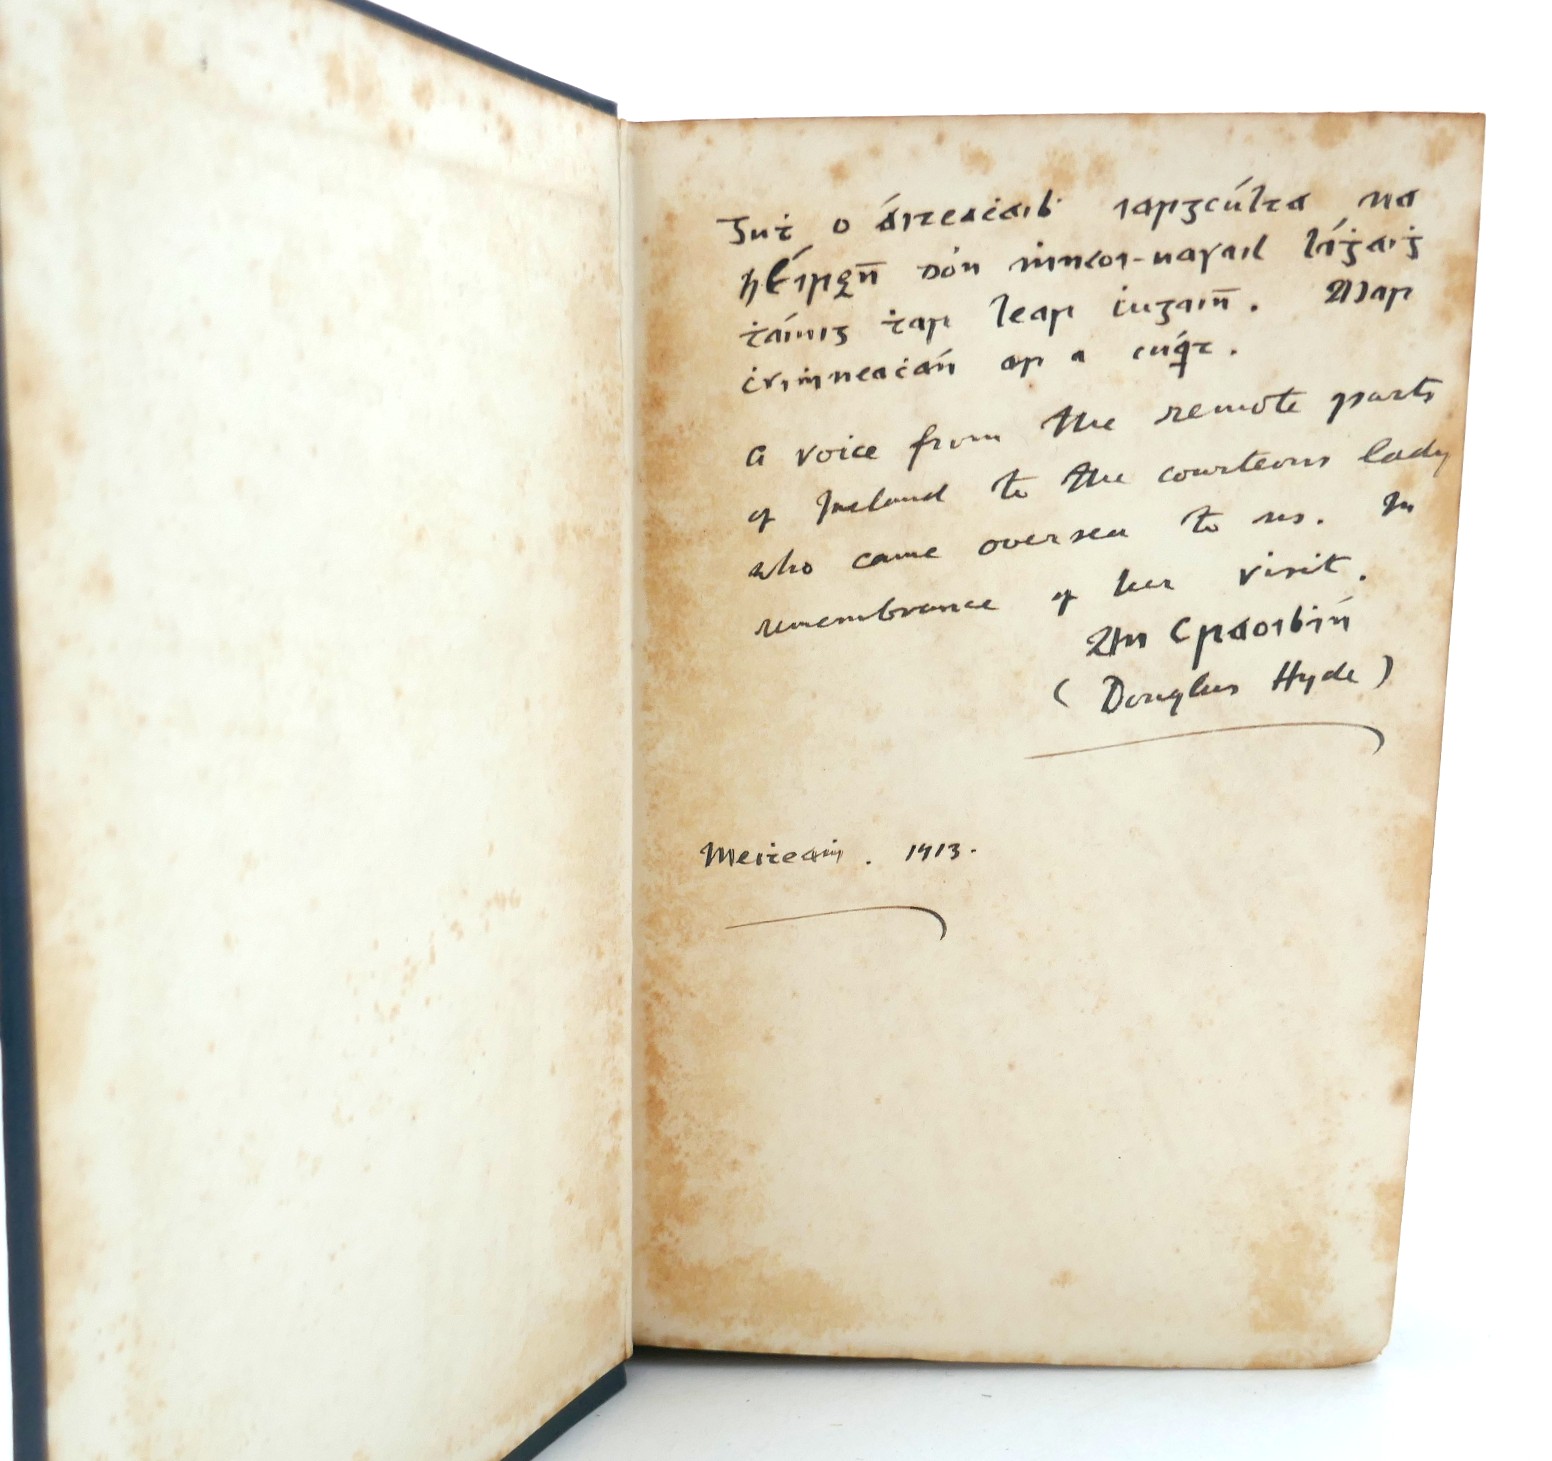 Guṫ o áiteaċaiḃ iargcúlta na
hÉirean̄ dón ṁnaoi-uasail láġaiġ
ṫáinig ṫar lear ċugain̄. Mar
ċuiṁneaċán ar a cuairt.
A voice from the remote parts
of Ireland to the courteous lady
who came oversea to us. In
remembrance of her visit.
An Craoibín
(Douglas Hyde)
Meiṫeaṁ. 1913.